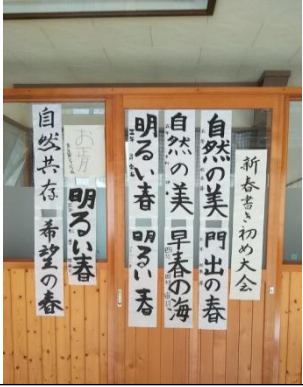 新春書き初め大会
自然の美
門出の春
自然の美
早春の海
明るい春
明るい春
お正月
明るい春
自然共存
希望の春